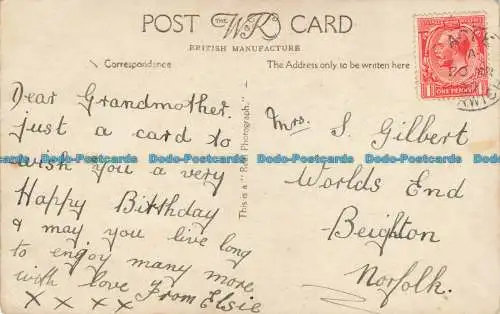 POST CARD
THE
W&K
BRITISH MANUFACTURE
Correspondence
The Address only to be written here
Dear Grandmother.
just a card to
wish you a very
Happy Birthday
& may you live long
to enjoy many more
with love From Elsie
x x x x
This is a "Real Photograph."
Mrs. S. Gilbert
Worlds End
Beighton
Norfolk.
1 ONE PENNY 1
Dodo-Postcards Dodo-Postcards Dodo-Postcards Dodo-Postcards